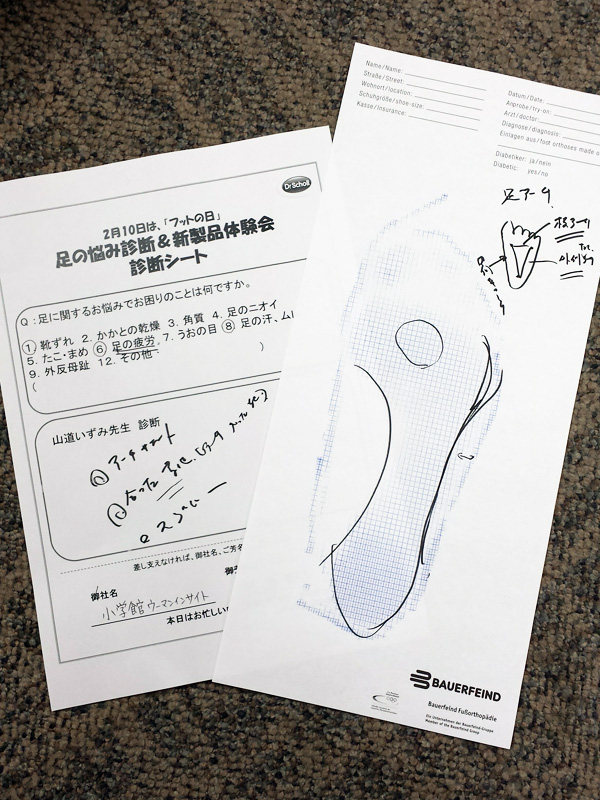 Dr.Scholl
2月10日は、「フットの日」
足の悩み診断＆新製品体験会
診断シート
Q：足に関するお悩みでお困りのことは何ですか。
① 靴ずれ 2. かかとの乾燥 3. 角質 4. 足のニオイ
5. たこ・まめ ⑥ 足の疲労 7. うおの目 ⑧ 足の汗、ム
9. 外反母趾 12. その他
( )
山道いずみ先生 診断
差し支えなければ、御社名、ご芳名
御社名
小学館ウーマンインサイト
本日はお忙しい
Name/Name:
Straße/Street:
Wohnort/location:
Schuhgröße/shoe-size:
Kasse/Insurance:
Datum/Date:
Anprobe/try-on:
Arzt/doctor:
Diagnose/diagnosis:
Einlagen aus/foot orthoses made o
Diabetiker: ja/nein
Diabetic: yes/no
BAUERFEIND
Bauerfeind Fußorthopädie
Ein Unternehmen der Bauerfeind-Gruppe
Member of the Bauerfeind Group